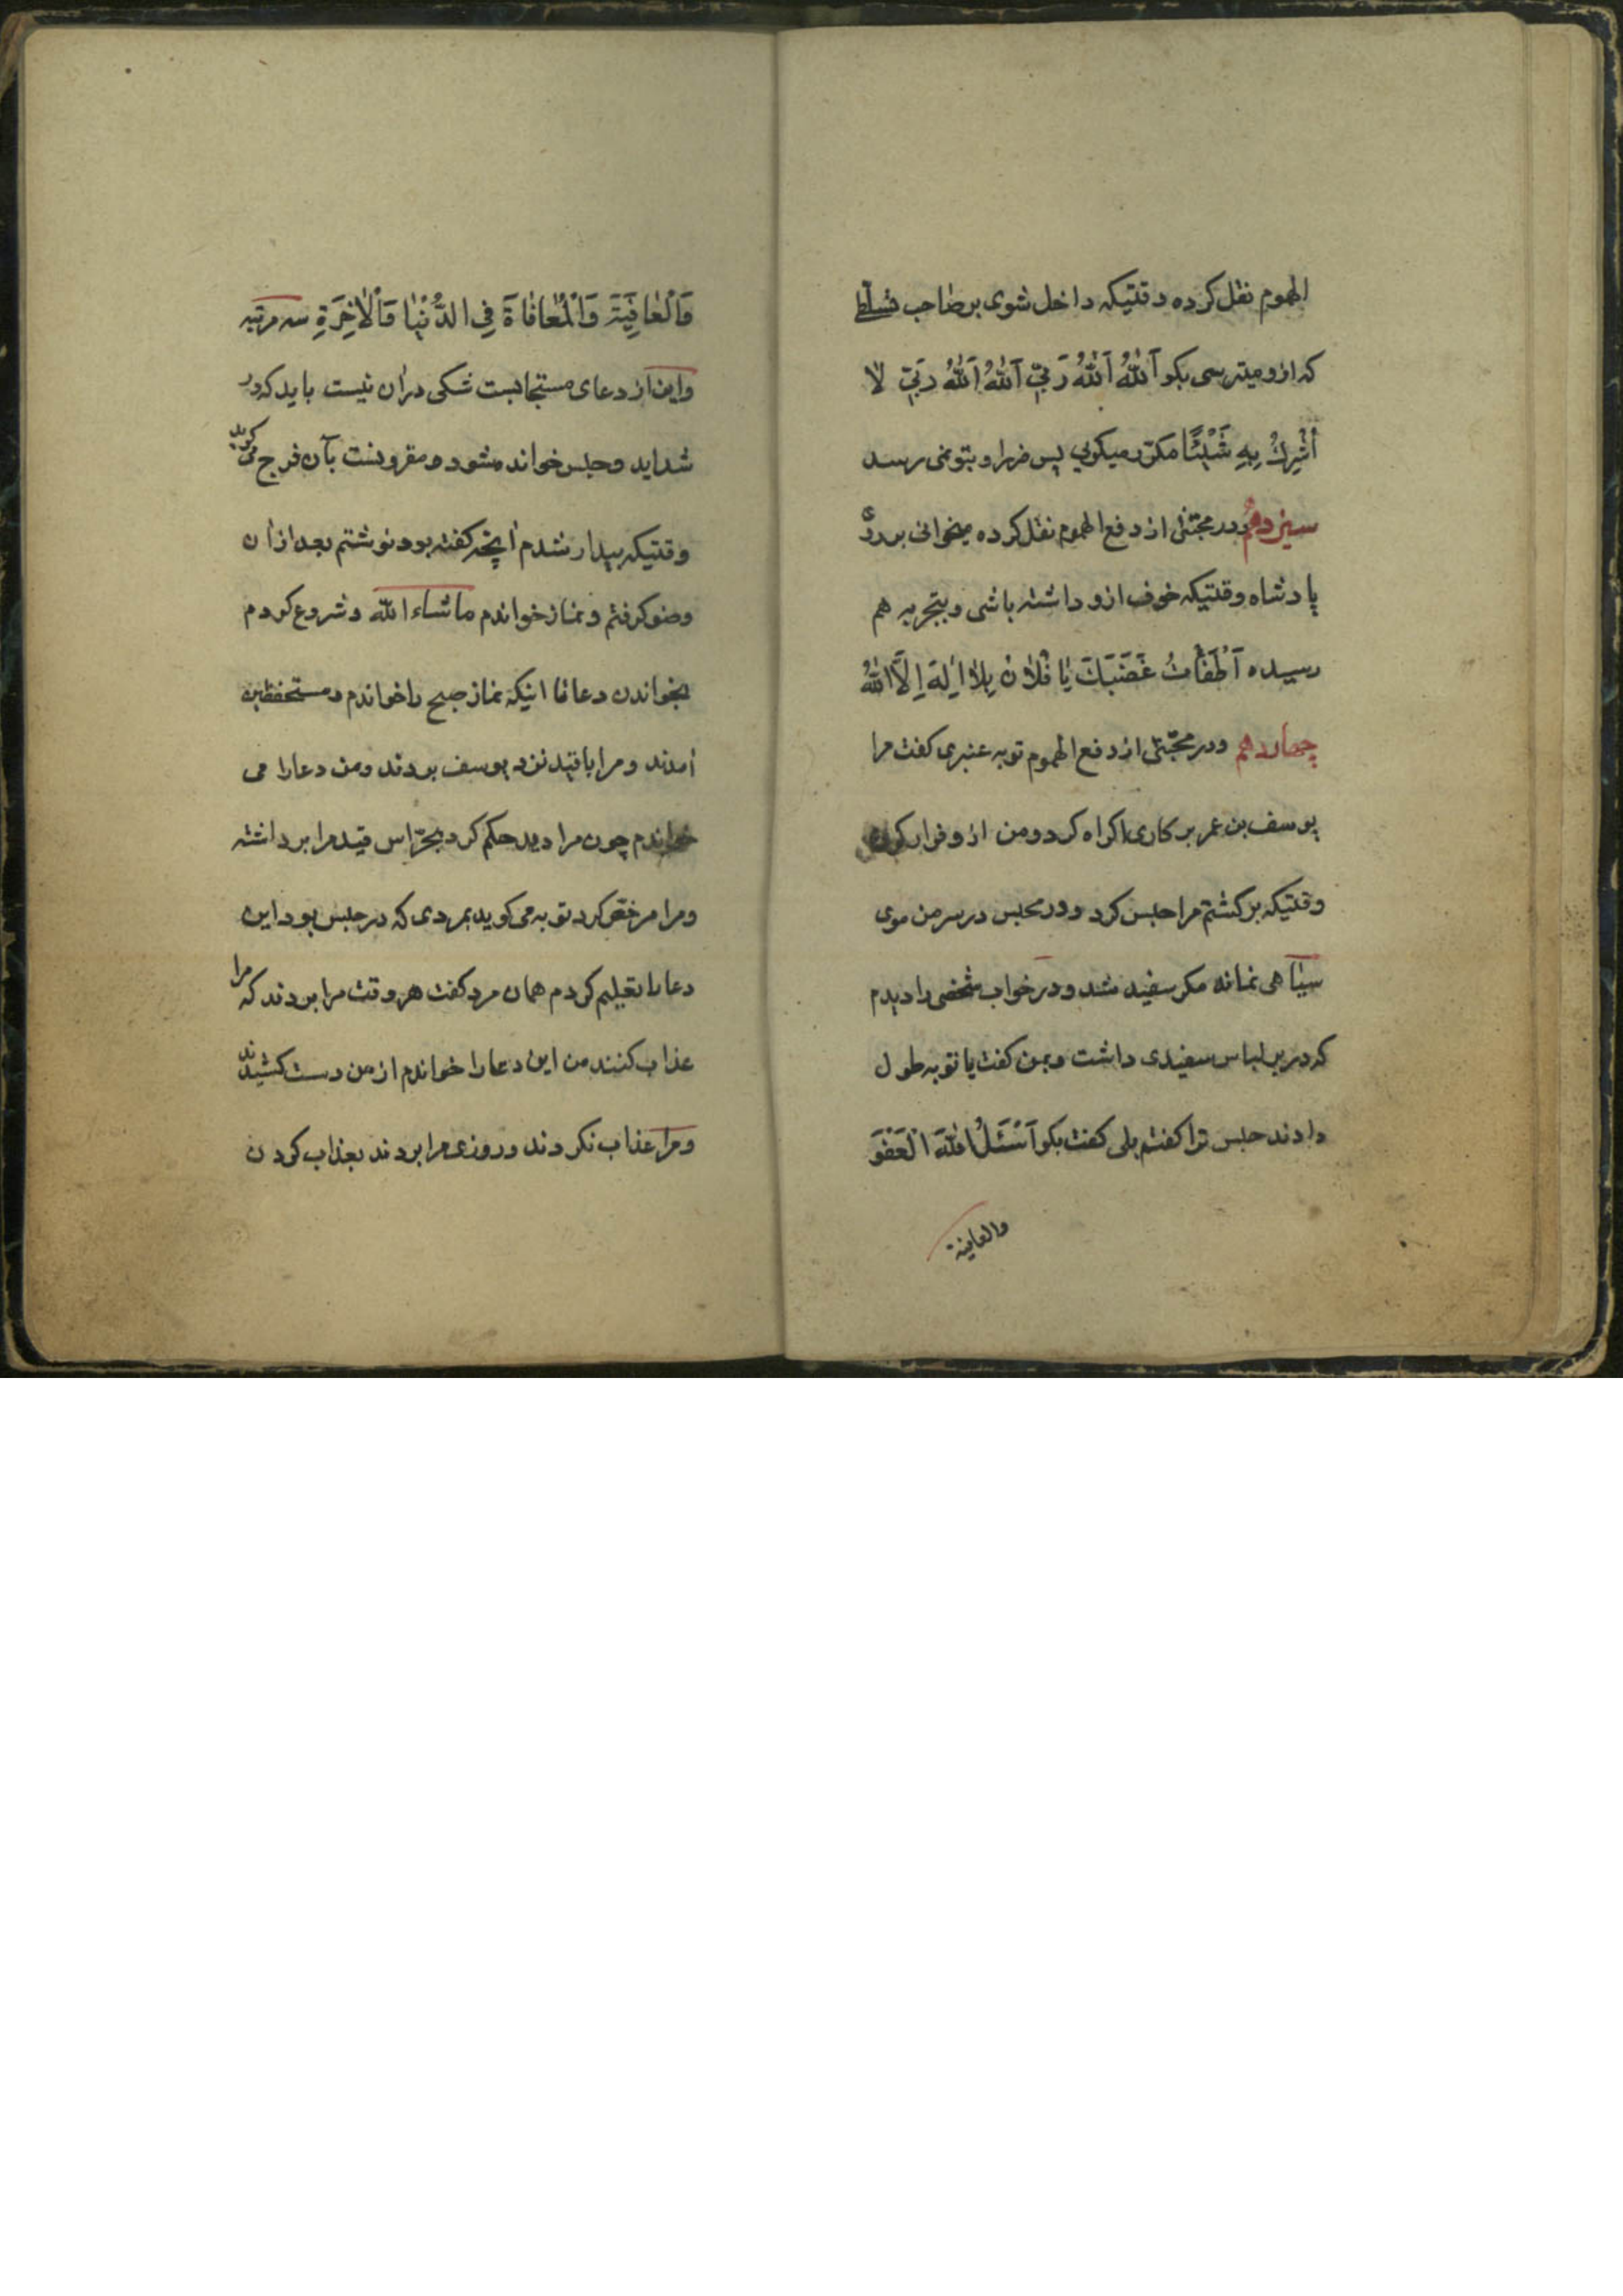 الهموم نقل کرده وقتیکه داخل شوی بر صاحب تسلط
که از و میترسی بکو اَللّٰهُ اَللّٰهُ رَبّی اَللّٰهُ اَللّٰهُ رَبّی لا
اُشْرِكُ بِهِ شَیْئًا مکرّر میکوئی پس ضرر او بتو نمی رسد
سیزدهم و در مجتنی از دفع الهموم نقل کرده میخوانی بر روی
پادشاه وقتیکه خوف ازو داشته باشی و بتجربه هم
رسیده اَطْفَأْتُ غَضَبَكَ یا فُلانُ بِلا اِلٰهَ اِلاَّ اللّٰهُ
چهاردهم و در مجتنی از دفع الهموم توبه عنبری کفت مرا
یوسف بن عمر بر کاری اکراه کرد و من از و فرار کردم
وقتیکه برکشتم مرا حبس کرد و در محبس در سر من موی
سیاهی نمانه مکر سفید شد و در خواب شخصی را دیدم
که در بر لباس سفیدی داشت و بمن کفت یا توبه طول
دادند حبس ترا کفتم بلی کفت بکو اَسْئَلُ اللّٰهَ الْعَفْوَ
والعافیة
وَالْعافِیَةَ وَالْمُعافاةَ فِی الدُّنْیا وَالْاٰخِرَةِ سه مرتبه
و این از دعای مستجابست شکی در ان نیست باید که در
شداید و حبس خوانده شود و مقرونست بآن فرج می کوید
وقتیکه بیدار شدم آنچه کفته بود نوشتم بعد از ان
وضو کرفتم و نماز خواندم ما شاء الله و شروع کردم
بخواندن دعا تا اینکه نماز صبح را خواندم و مستحفظین
آمدند و مرا با قید نزد یوسف بردند و من دعا را می
خواندم چون مرا دید حکم کرد بحرّاس قید مرا برداشته
و مرا مرخص کرد توبه می کوید بمردی که در حبس بود این
دعا را تعلیم کردم همان مرد کفت هر وقت مرا بردند که مرا
عذاب کنند من این دعا را خواندم از من دست کشیدند
و مرا عذاب نکردند و روزی مرا بردند بعذاب کردن